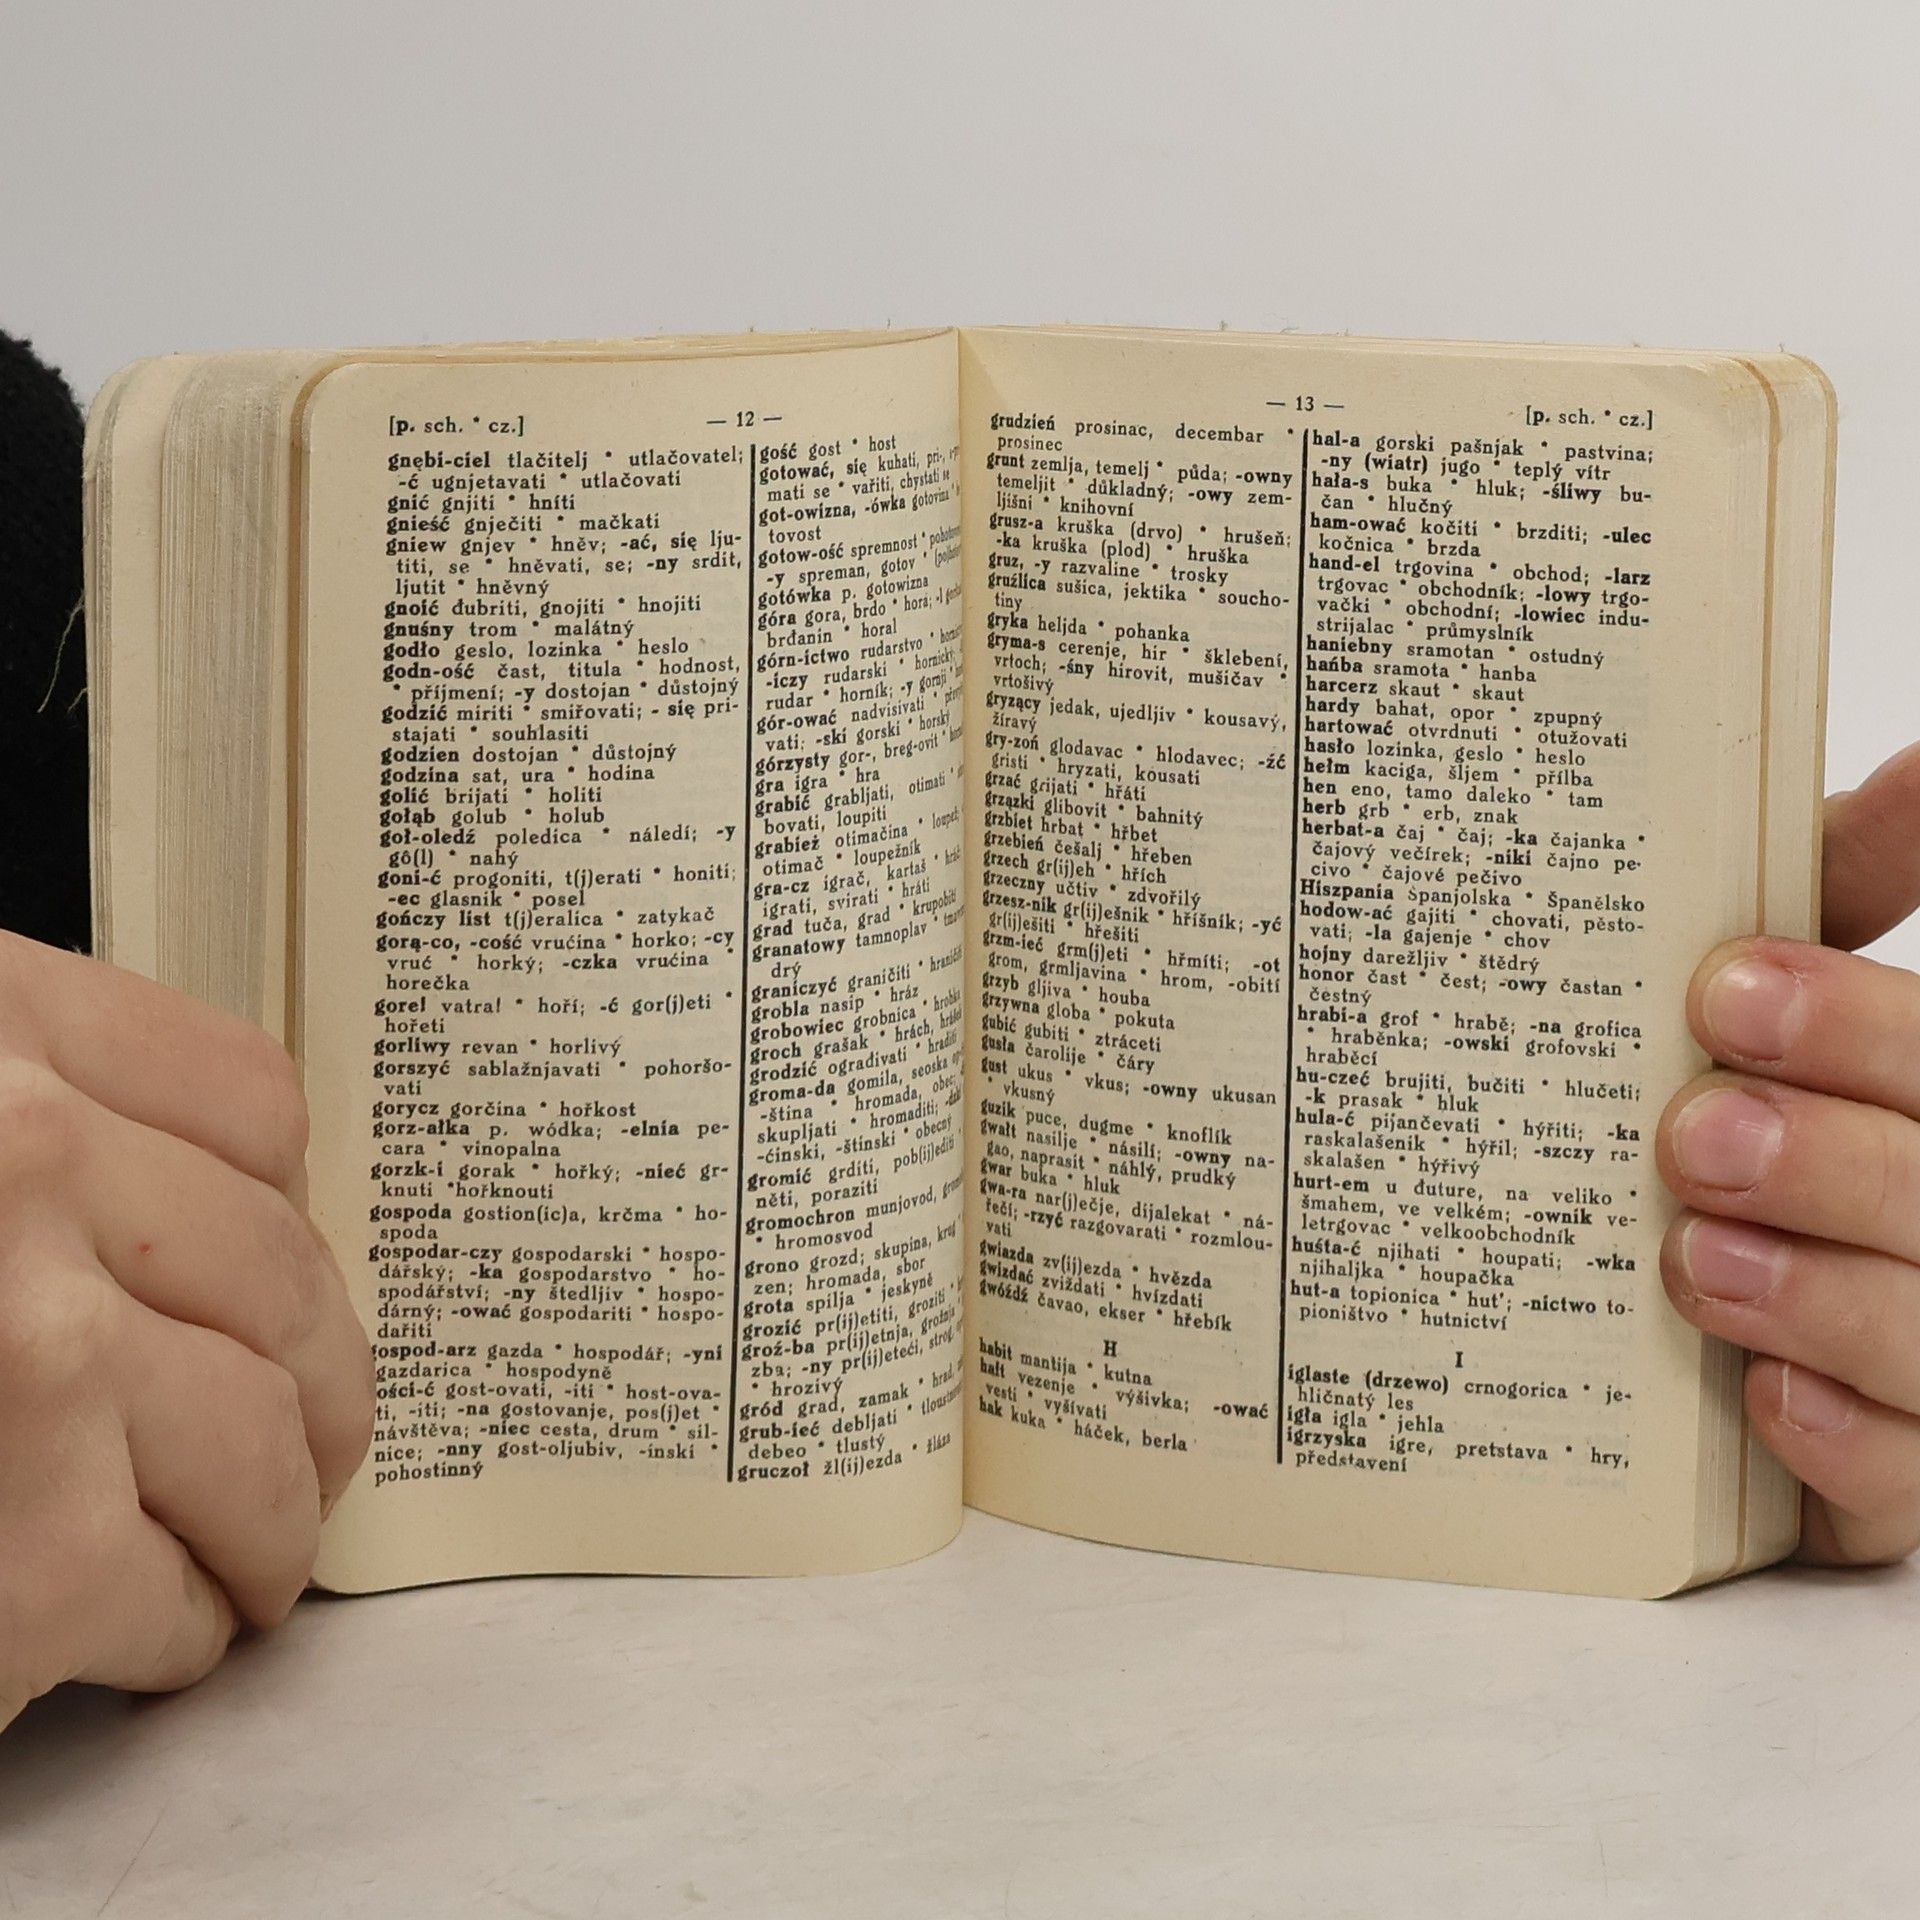 [p. sch. * cz.]
— 12 —
gnębi-ciel tlačitelj * utlačovatel;
-ć ugnjetavati * utlačovati
gnić gnjiti * hníti
gnieść gnječiti * mačkati
gniew gnjev * hněv; -ać, się lju-
titi, se * hněvati, se; -ny srdit,
ljutit * hněvný
gnoić đubriti, gnojiti * hnojiti
gnuśny trom * malátný
godło geslo, lozinka * heslo
godn-ość čast, titula * hodnost,
* příjmení; -y dostojan * důstojný
godzić miriti * smiřovati; - się pri-
stajati * souhlasiti
godzien dostojan * důstojný
godzina sat, ura * hodina
golić brijati * holiti
gołąb golub * holub
goł-oledź poledica * náledí; -y
gô(l) * nahý
goni-ć progoniti, t(j)erati * honiti;
-ec glasnik * posel
gończy list t(j)eralica * zatykač
gorą-co, -cość vrućina * horko; -cy
vruć * horký; -czka vrućina *
horečka
gore! vatra! * hoří; -ć gor(j)eti *
hořeti
gorliwy revan * horlivý
gorszyć sablažnjavati * pohoršo-
vati
gorycz gorčina * hořkost
gorz-ałka p. wódka; -elnia pe-
cara * vinopalna
gorzk-i gorak * hořký; -nieć gr-
knuti *hořknouti
gospoda gostion(ic)a, krčma * ho-
spoda
gospodar-czy gospodarski * hospo-
dářský; -ka gospodarstvo * ho-
spodářství; -ny štedljiv * hospo-
dárný; -ować gospodariti * hospo-
dařiti
gospod-arz gazda * hospodář; -yni
gazdarica * hospodyně
ości-ć gost-ovati, -iti * host-ova-
ti, -iti; -na gostovanje, pos(j)et *
návštěva; -niec cesta, drum * sil-
nice; -nny gost-oljubiv, -inski *
pohostinný
gość gost * host
gotować, się kuhati, pri-,
mati se * vařiti, chystati se
got-owizna, -ówka gotovina *
tovost
gotow-ość spremnost *
-y spreman, gotov *
gotówka p. gotowizna
góra gora, brdo * hora;
brđanin * horal
górn-ictwo rudarstvo *
-iczy rudarski * hornický;
rudar * horník; -y gornji *
gór-ować nadvisivati *
vati; -ski gorski * horský
górzysty gor-, breg-ovit *
gra igra * hra
grabić grabljati, otimati *
bovati, loupiti
grabież otimačina *
otimač * loupežník
gra-cz igrač, kartaš *
igrati, svirati * hráti
grad tuča, grad * krupobití
granatowy tamnoplav *
drý
graniczyć graničiti *
grobla nasip * hráz
grobowiec grobnica * hrobka
groch grašak * hrách,
grodzić ograđivati * hraditi
groma-da gomila, seoska
-ština * hromada, obec;
skupljati * hromaditi;
-ćinski, -štinski * obecný
gromić grditi, pob(ij)editi
něti, poraziti
gromochron munjovod,
* hromosvod
grono grozd; skupina, krug
zen; hromada, sbor
grota spilja * jeskyně
grozić pr(ij)etiti, groziti *
groź-ba pr(ij)etnja, grožnja
zba; -ny pr(ij)eteći, strog,
* hrozivý
gród grad, zamak * hrad,
grub-ieć debljati *
debeo * tlustý
gruczoł žl(ij)ezda * žláza
— 13 —
[p. sch. * cz.]
grudzień prosinac, decembar *
prosinec
grunt zemlja, temelj * půda; -owny
temeljit * důkladný; -owy zem-
ljišni * knihovní
grusz-a kruška (drvo) * hrušeň;
-ka kruška (plod) * hruška
gruz, -y razvaline * trosky
gruźlica sušica, jektika * soucho-
tiny
gryka heljda * pohanka
gryma-s cerenje, hir * šklebení,
vrtoch; -śny hirovit, mušičav *
vrtošivý
gryzący jedak, ujedljiv * kousavý,
žíravý
gry-zoń glodavac * hlodavec; -źć
gristi * hryzati, kousati
grzać grijati * hřáti
grzązki glibovit * bahnitý
grzbiet hrbat * hřbet
grzebień češalj * hřeben
grzech gr(ij)eh * hřích
grzeczny učtiv * zdvořilý
grzesz-nik gr(ij)ešnik * hříšník; -yć
gr(ij)ešiti * hřešiti
grzm-ieć grm(j)eti * hřmíti; -ot
grom, grmljavina * hrom, -obití
grzyb gljiva * houba
grzywna globa * pokuta
gubić gubiti * ztráceti
gusła čarolije * čáry
gust ukus * vkus; -owny ukusan
* vkusný
guzik puce, dugme * knoflík
gwałt nasilje * násilí; -owny na-
gao, naprasit * náhlý, prudký
gwar buka * hluk
gwa-ra nar(j)ečje, dijalekat * ná-
řečí; -rzyć razgovarati * rozmlou-
vati
gwiazda zv(ij)ezda * hvězda
gwizdać zviždati * hvízdati
gwóźdź čavao, ekser * hřebík
H
habit mantija * kutna
haft vezenje * výšivka; -ować
vesti * vyšívati
hak kuka * háček, berla
hal-a gorski pašnjak * pastvina;
-ny (wiatr) jugo * teplý vítr
hała-s buka * hluk; -śliwy bu-
čan * hlučný
ham-ować kočiti * brzditi; -ulec
kočnica * brzda
hand-el trgovina * obchod; -larz
trgovac * obchodník; -lowy trgo-
vački * obchodní; -lowiec indu-
strijalac * průmyslník
haniebny sramotan * ostudný
hańba sramota * hanba
harcerz skaut * skaut
hardy bahat, opor * zpupný
hartować otvrdnuti * otužovati
hasło lozinka, geslo * heslo
hełm kaciga, šljem * přílba
hen eno, tamo daleko * tam
herb grb * erb, znak
herbat-a čaj * čaj; -ka čajanka *
čajový večírek; -niki čajno pe-
civo * čajové pečivo
Hiszpania Španjolska * Španělsko
hodow-ać gajiti * chovati, pěsto-
vati; -la gajenje * chov
hojny darežljiv * štědrý
honor čast * čest; -owy častan *
čestný
hrabi-a grof * hrabě; -na grofica
* hraběnka; -owski grofovski *
hraběcí
hu-czeć brujiti, bučiti * hlučeti;
-k prasak * hluk
hula-ć pijančevati * hýřiti; -ka
raskalašenik * hýřil; -szczy ra-
skalašen * hýřivý
hurt-em u đuture, na veliko *
šmahem, ve velkém; -ownik ve-
letrgovac * velkoobchodník
huśta-ć njihati * houpati; -wka
njihaljka * houpačka
hut-a topionica * hut'; -nictwo to-
pioništvo * hutnictví
I
iglaste (drzewo) crnogorica * je-
hličnatý les
igła igla * jehla
igrzyska igre, pretstava * hry,
představení